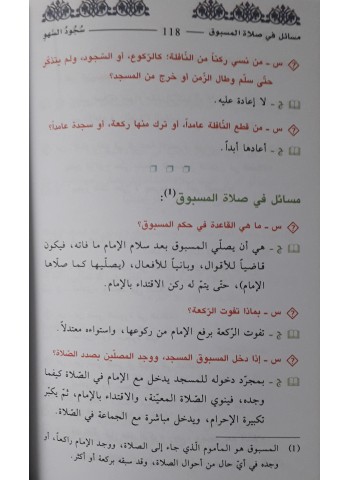 مسائل في صلاة المسبوق 118 سُجُودُ السَّهوِ
س ـ من نسي ركناً من النَّافلة: كالرّكوع، أو السّجود، ولم يتذكّر
حتَّى سلّم وطال الزَّمن أو خرج من المسجد؟
ج ـ لا إعادة عليه.
س ـ من قطع النَّافلة عامداً، أو ترك منها ركعة، أو سجدة عامداً؟
ج ـ أعادها أبداً.
مسائل في صلاة المسبوق(1):
س ـ ما هي القاعدة في حكم المسبوق؟
ج ـ هي أن يصلّي المسبوق بعد سلام الإمام ما فاته، فيكون
قاضياً للأقوال، وبانياً للأفعال، (يصلّيها كما صلّاها
الإمام)، حتَّى يتمّ له ركن الاقتداء بالإمام.
س ـ بماذا تفوت الرّكعة؟
ج ـ تفوت الرّكعة برفع الإمام من ركوعها، واستواءه معتدلاً.
س ـ إذا دخل المسبوق المسجد، ووجد المصلّين بصدد الصّلاة؟
ج ـ بمجرّد دخوله للمسجد يدخل مع الإمام في الصّلاة كيفما
وجده، فينوي الصّلاة المعيّنة، والاقتداء بالإمام، ثمّ يكبّر
تكبيرة الإحرام، ويدخل مباشرة مع الجماعة في الصّلاة.
(1) المسبوق هو المأموم الَّذي جاء إلى الصّلاة، ووجد الإمام راكعاً، أو
وجده في أيّ حال من أحوال الصّلاة، وقد سبقه بركعة أو أكثر.